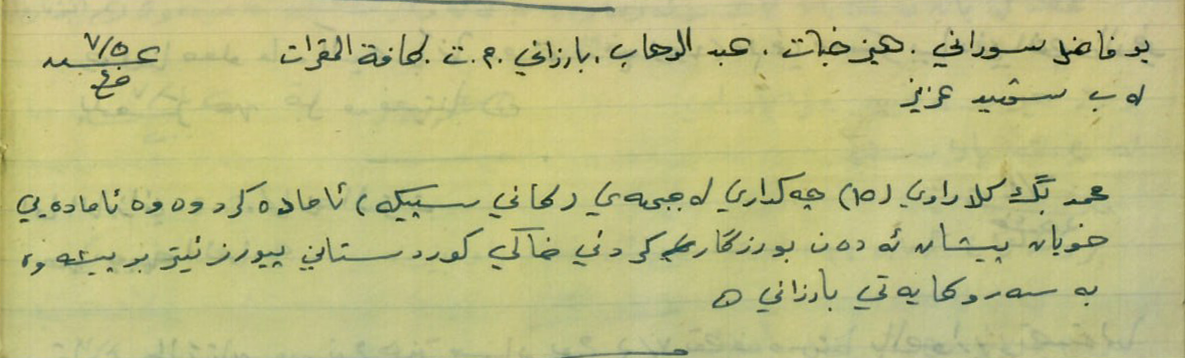 بو فاضل سوراني . هيز خبات . عبد الوهاب . بارزاني . م . ت . لكافة المقرات
٧/٥
لە ب سعيد عزيز
محمد بگ كلاراوي (١٥) چەكداري لە جبهەي (كاني سپيكە) ئامادە كردوە وە ئامادەيي
خويان پيشان ئەدەن بو رزگار كردني خاكي كوردستاني پيروز ئيتر بو پيشەوە
بە سەروكايەتي بارزاني